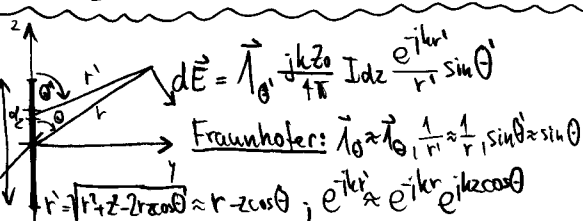 z
θ' r' dE⃗ = 1⃗_θ' jkZ₀/4π Idz e^-jkr'/r' sinθ'
dz θ r
Fraunhofer: 1⃗_θ' ≈ 1⃗_θ, 1/r' ≈ 1/r, sinθ' ≈ sinθ
y
r' = √(r²+z²-2rzcosθ) ≈ r - zcosθ ; e^-jkr' ≈ e^-jkr e^jkzcosθ